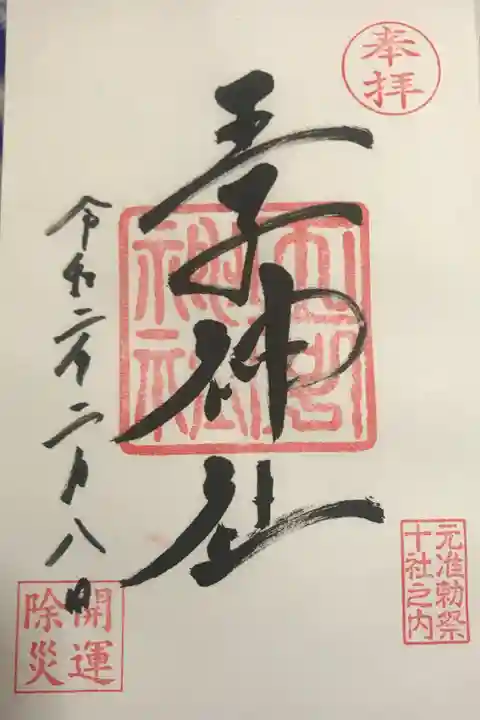 奉拝
王子神社
王子神社
令和二年二月八日
元准勅祭
十社之内
開運
除災